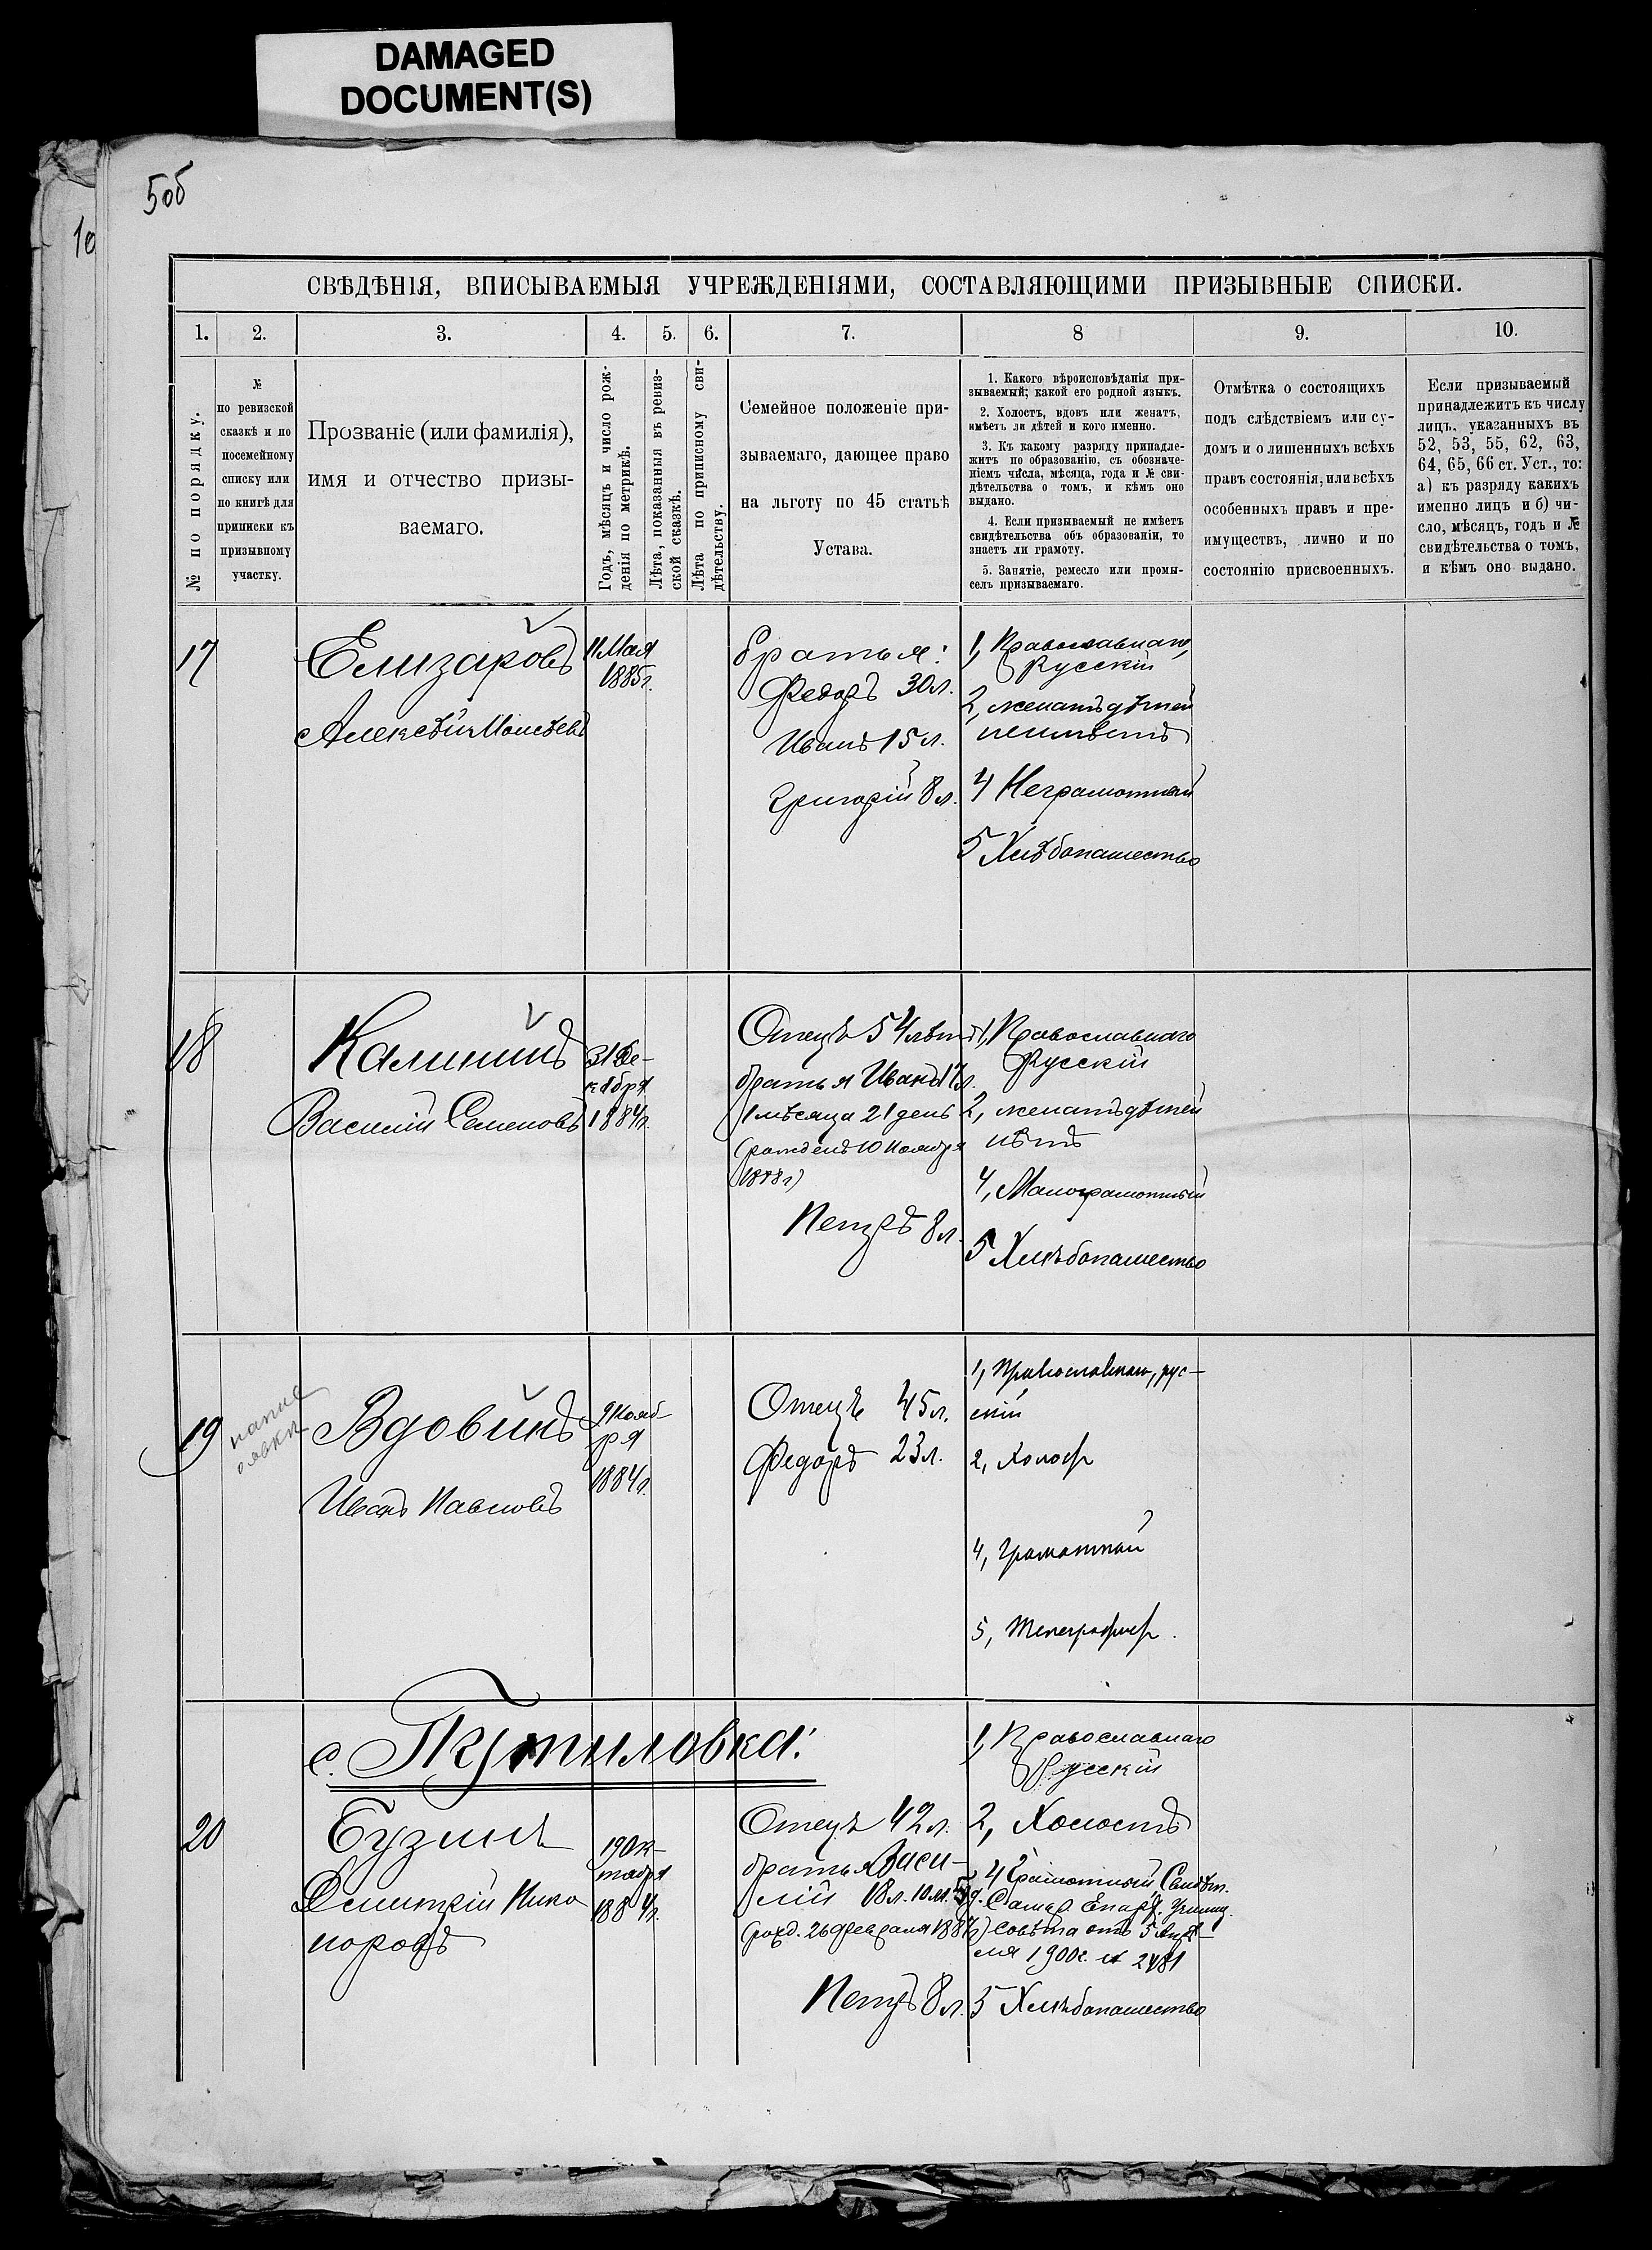 DAMAGED
DOCUMENT(S)
50б
10
СВѢДѢНІЯ, ВПИСЫВАЕМЫЯ УЧРЕЖДЕНІЯМИ, СОСТАВЛЯЮЩИМИ ПРИЗЫВНЫЕ СПИСКИ.
1. 2. 3. 4. 5. 6. 7. 8 9. 10.
№ по порядку.
№
по ревизской
сказкѣ и по
посемейному
списку или
по книгѣ для
приписки къ
призывному
участку.
Прозваніе (или фамилія),
имя и отчество призы-
ваемаго.
Годъ, мѣсяцъ и число рож-
денія по метрикѣ.
Лѣта, показанныя въ ревиз-
ской сказкѣ.
Лѣта по приписному сви-
дѣтельству.
Семейное положеніе при-
зываемаго, дающее право
на льготу по 45 статьѣ
Устава.
1. Какого вѣроисповѣданія при-
зываемый; какой его родной языкъ.
2. Холостъ, вдовъ или женатъ,
имѣетъ ли дѣтей и кого именно.
3. Къ какому разряду принадле-
житъ по образованію, съ обозначе-
ніемъ числа, мѣсяца, года и № сви-
дѣтельства о томъ, и кѣмъ оно
выдано.
4. Если призываемый не имѣетъ
свидѣтельства объ образованіи, то
знаетъ ли грамоту.
5. Занятіе, ремесло или промы-
селъ призываемаго.
Отмѣтка о состоящихъ
подъ слѣдствіемъ или су-
домъ и о лишенныхъ всѣхъ
правъ состоянія, или всѣхъ
особенныхъ правъ и пре-
имуществъ, лично и по
состоянію присвоенныхъ.
Если призываемый
принадлежитъ къ числу
лицъ, указанныхъ въ
52, 53, 55, 62, 63,
64, 65, 66 ст. Уст., то:
а) къ разряду какихъ
именно лицъ и б) чи-
сло, мѣсяцъ, годъ и №
свидѣтельства о томъ,
и кѣмъ оно выдано.
17
Елизаровъ
Алексѣй Моисѣевъ
11 Мая
1885г.
братья:
Федоръ 30л.
Иванъ 15л.
Григорій 8л.
1, Православнаго,
Русскій
2, женатъ дѣтей
неимѣетъ
4 Неграмотный
5 Хлѣбопашество
18
Калининъ
Василій Семеновъ
31 Де-
кабря
1884г.
Отецъ 54 лѣтъ
братья Иванъ 17л.
1 мѣсяца 21 день
(рожденъ 10 Ноября
1888г)
Петръ 8л.
1, Православнаго
Русскій
2, женатъ дѣтей
нѣтъ
4, Малограмотный
5 Хлѣбопашество
19
Вдовинъ
Иванъ Павловъ
9 Нояб-
ря
1884г.
Отецъ 45л.
Федоръ 23л.
1, Православнаго, рус-
скій
2, Холост
4, Грамотный
5, Телеграфист.
с. Ткутиловка:
20
Бузинъ
Дмитрій Ника
норовъ
19 Ок-
тября
1884г.
Отецъ 42л.
братья Васи-
лій 18л. 10м. 5д.
(рожд. 26 Февраля 1887г)
Петръ 8л.
1, Православнаго
Русскій
2, Холостъ
4 Грамотный, Свидѣт.
Самар. Епарх. Училищ.
Совѣта отъ 5 Апрѣ-
ля 1900г. № 2481
5 Хлѣбопашество